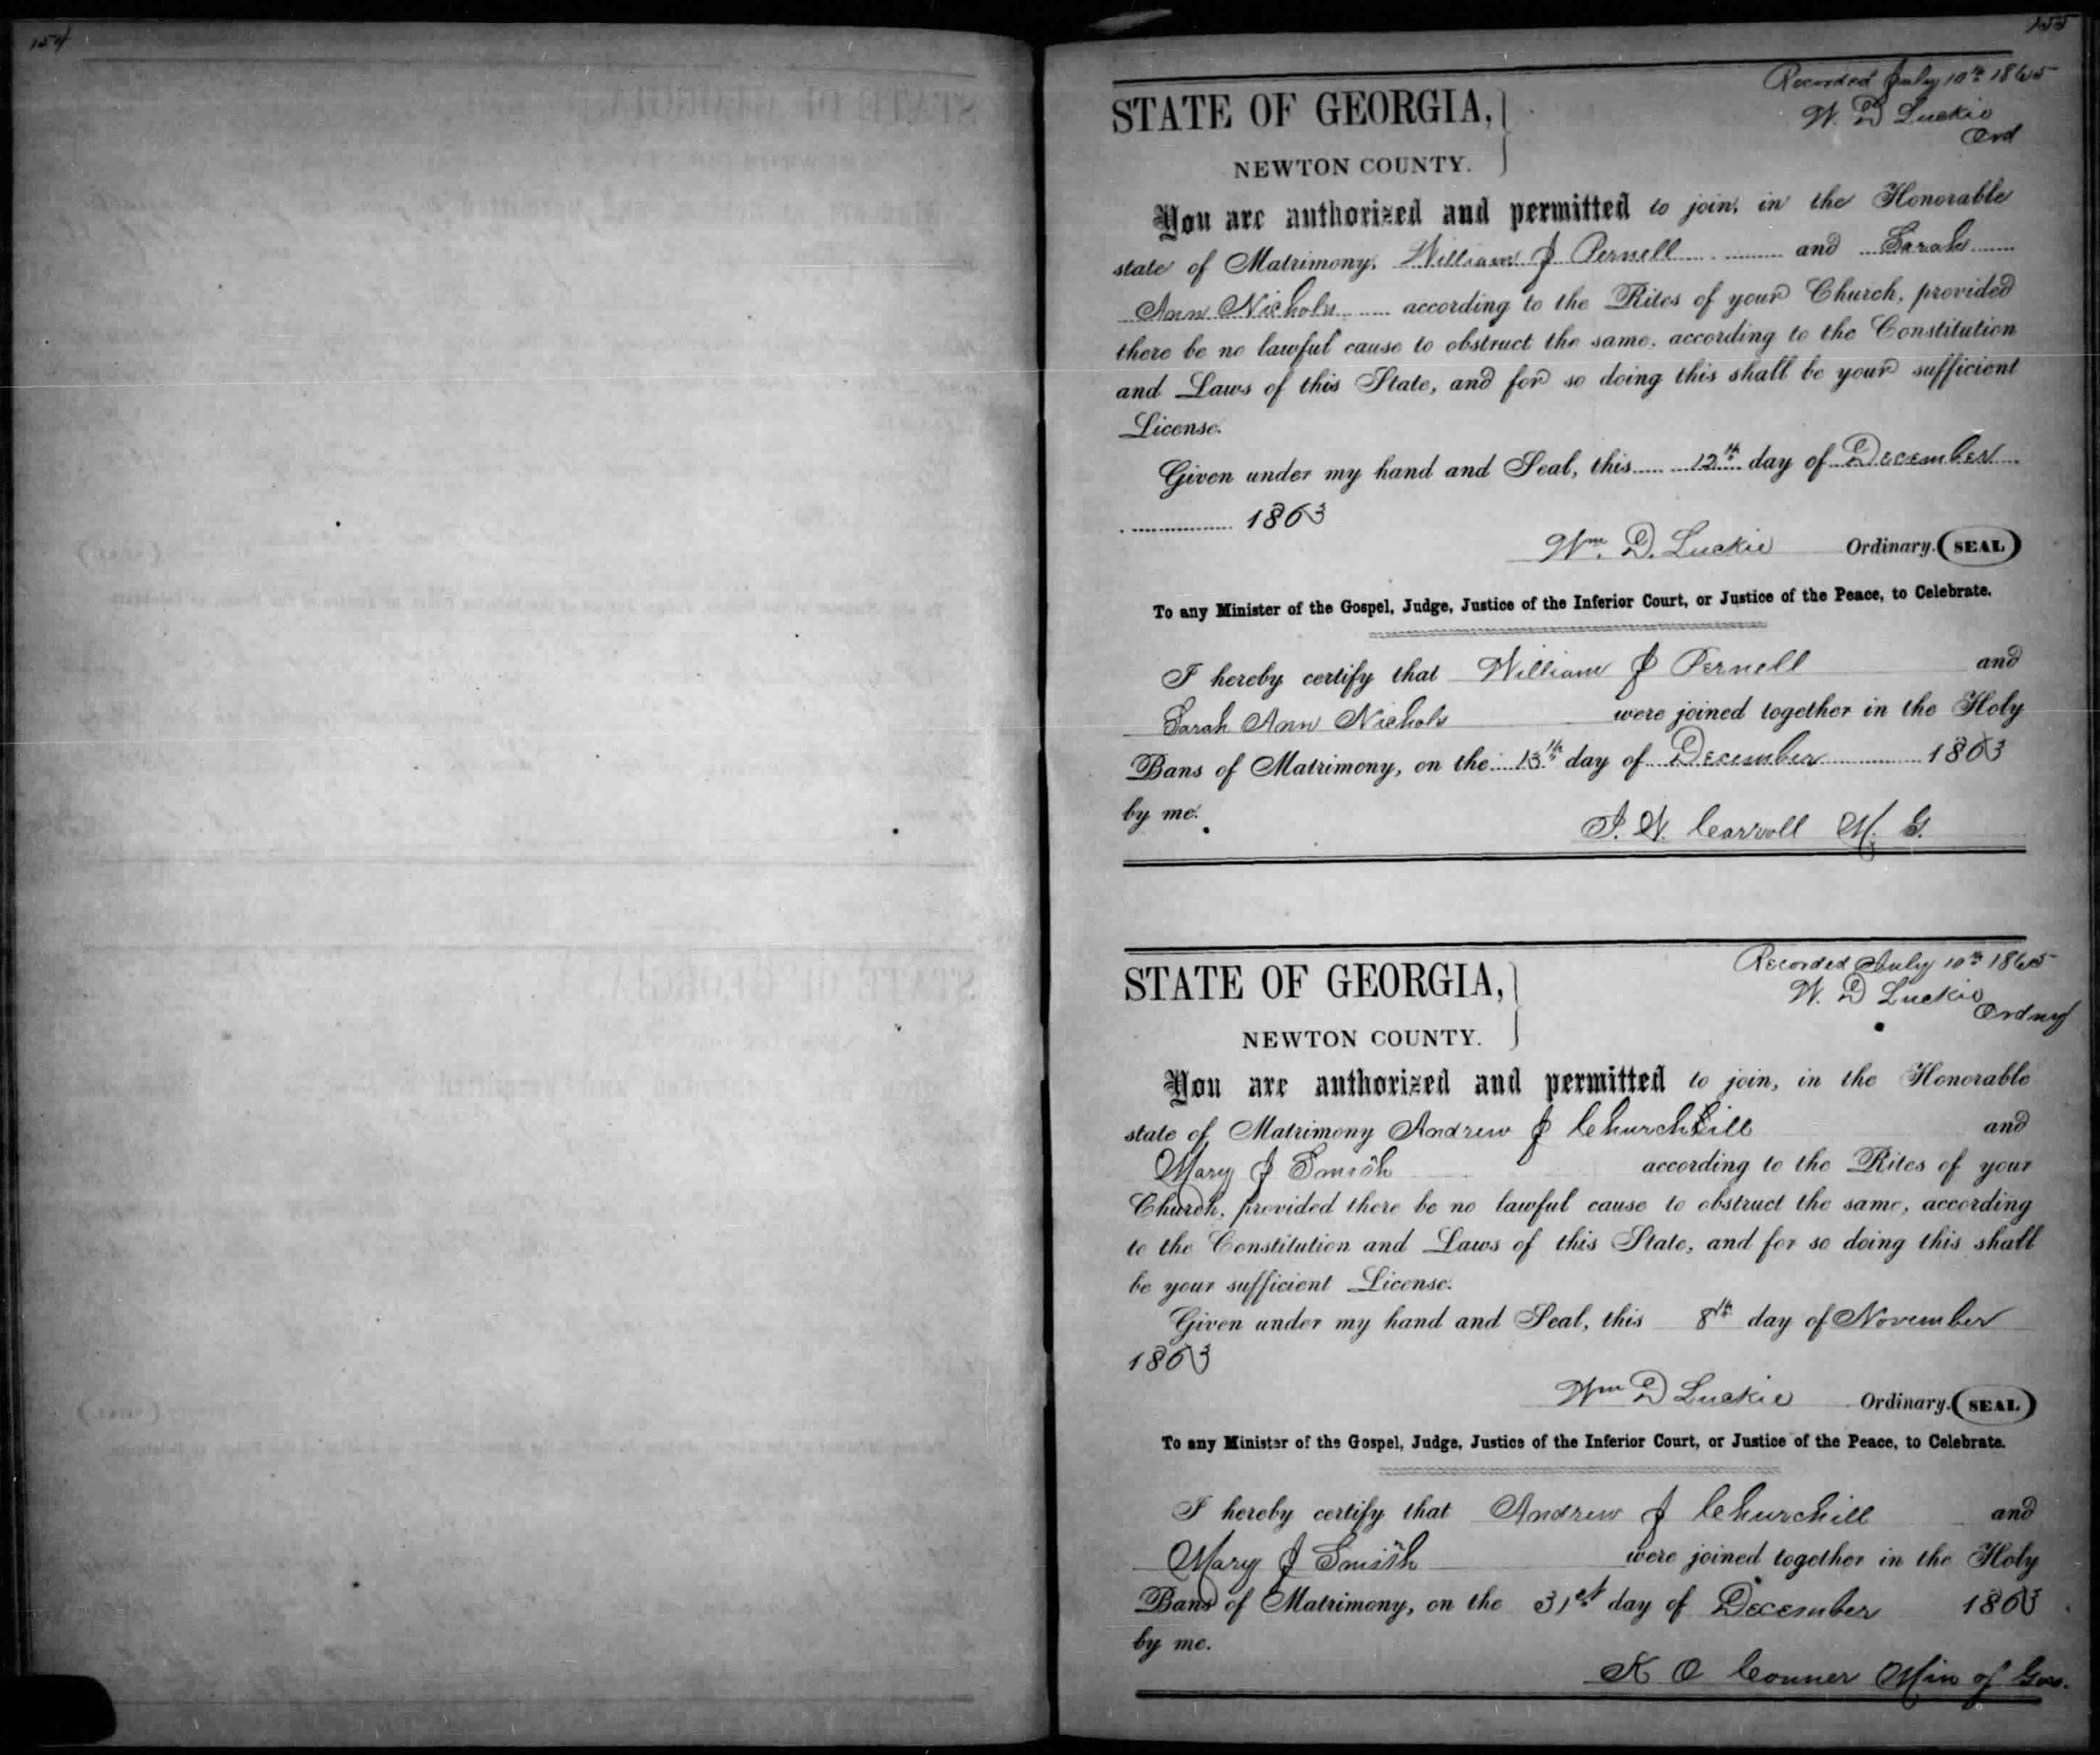 154
155
Recorded July 10th 1865
W. D Luckie
Ord
STATE OF GEORGIA,
NEWTON COUNTY.
You are authorized and permitted to join, in the Honorable
state of Matrimony, William J Pernell and Sarah
Ann Nichols according to the Rites of your Church, provided
there be no lawful cause to obstruct the same, according to the Constitution
and Laws of this State, and for so doing this shall be your sufficient
License.
Given under my hand and Seal, this 12th day of December
1863
Wm. D. Luckie Ordinary. (SEAL)
To any Minister of the Gospel, Judge, Justice of the Inferior Court, or Justice of the Peace, to Celebrate.
I hereby certify that William J Pernell and
Sarah Ann Nichols were joined together in the Holy
Bans of Matrimony, on the 13th day of December 1863
by me.
J. N. Carroll M. G.
Recorded July 10th 1865
W. D Luckie
Ordny
STATE OF GEORGIA,
NEWTON COUNTY.
You are authorized and permitted to join, in the Honorable
state of Matrimony Andrew J Churchill and
Mary J Smith according to the Rites of your
Church, provided there be no lawful cause to obstruct the same, according
to the Constitution and Laws of this State, and for so doing this shall
be your sufficient License.
Given under my hand and Seal, this 8th day of November
1863
Wm D Luckie Ordinary. (SEAL)
To any Minister of the Gospel, Judge, Justice of the Inferior Court, or Justice of the Peace, to Celebrate.
I hereby certify that Andrew J Churchill and
Mary J Smith were joined together in the Holy
Bans of Matrimony, on the 31st day of December 1863
by me.
K O Conner Min of Gos.